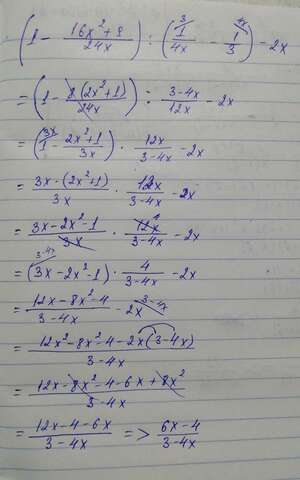 (1 - (16x² + 8)/(24x)) : (1/(4x) - 1/3) - 2x
= (1 - 8(2x²+1)/(24x)) : (3-4x)/(12x) - 2x
= (1 - (2x²+1)/(3x)) · (12x)/(3-4x) - 2x
= (3x-(2x²+1))/(3x) · (12x)/(3-4x) - 2x
= (3x-2x²-1)/(3x) · (12x)/(3-4x) - 2x
= (3x-2x²-1) · 4/(3-4x) - 2x
= (12x-8x²-4)/(3-4x) - 2x
= (12x²-8x²-4-2x(3-4x))/(3-4x)
= (12x-8x²-4-6x+8x²)/(3-4x)
= (12x-4-6x)/(3-4x) => (6x-4)/(3-4x)